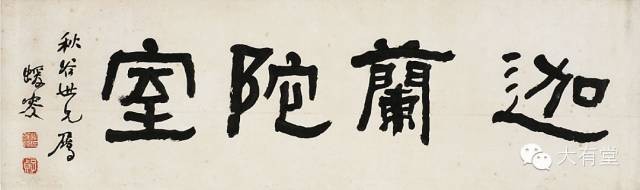 迦蘭陀室
秋谷世兄屬
蝯叟
大有堂